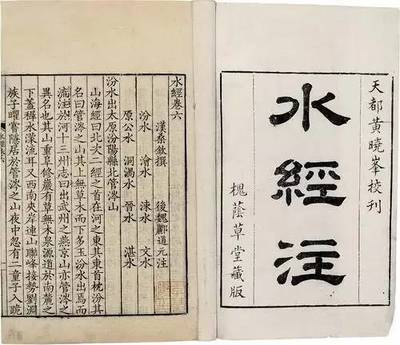 天都黃曉峯校刊
水經注
槐蔭草堂藏版
水經卷六
漢桑欽撰　後魏酈道元注
汾水　澮水　涑水　文水
原公水　洞濄水　晉水　湛水
汾水出太原汾陽縣北管涔山
山海經曰北次二經之首在河之東其東首枕汾其
名曰管涔之山其上無草木而下多玉汾水出焉而
西流注於河十三州志曰出武州之燕京山亦管涔之
異名也其山重阜修巖有草無木泉源導於南麓之
下蓋稚水濛流耳又西南夾岸連山聯峰接勢劉淵
族子曜嘗隱居於管涔之山夜中忽有一童子入跪